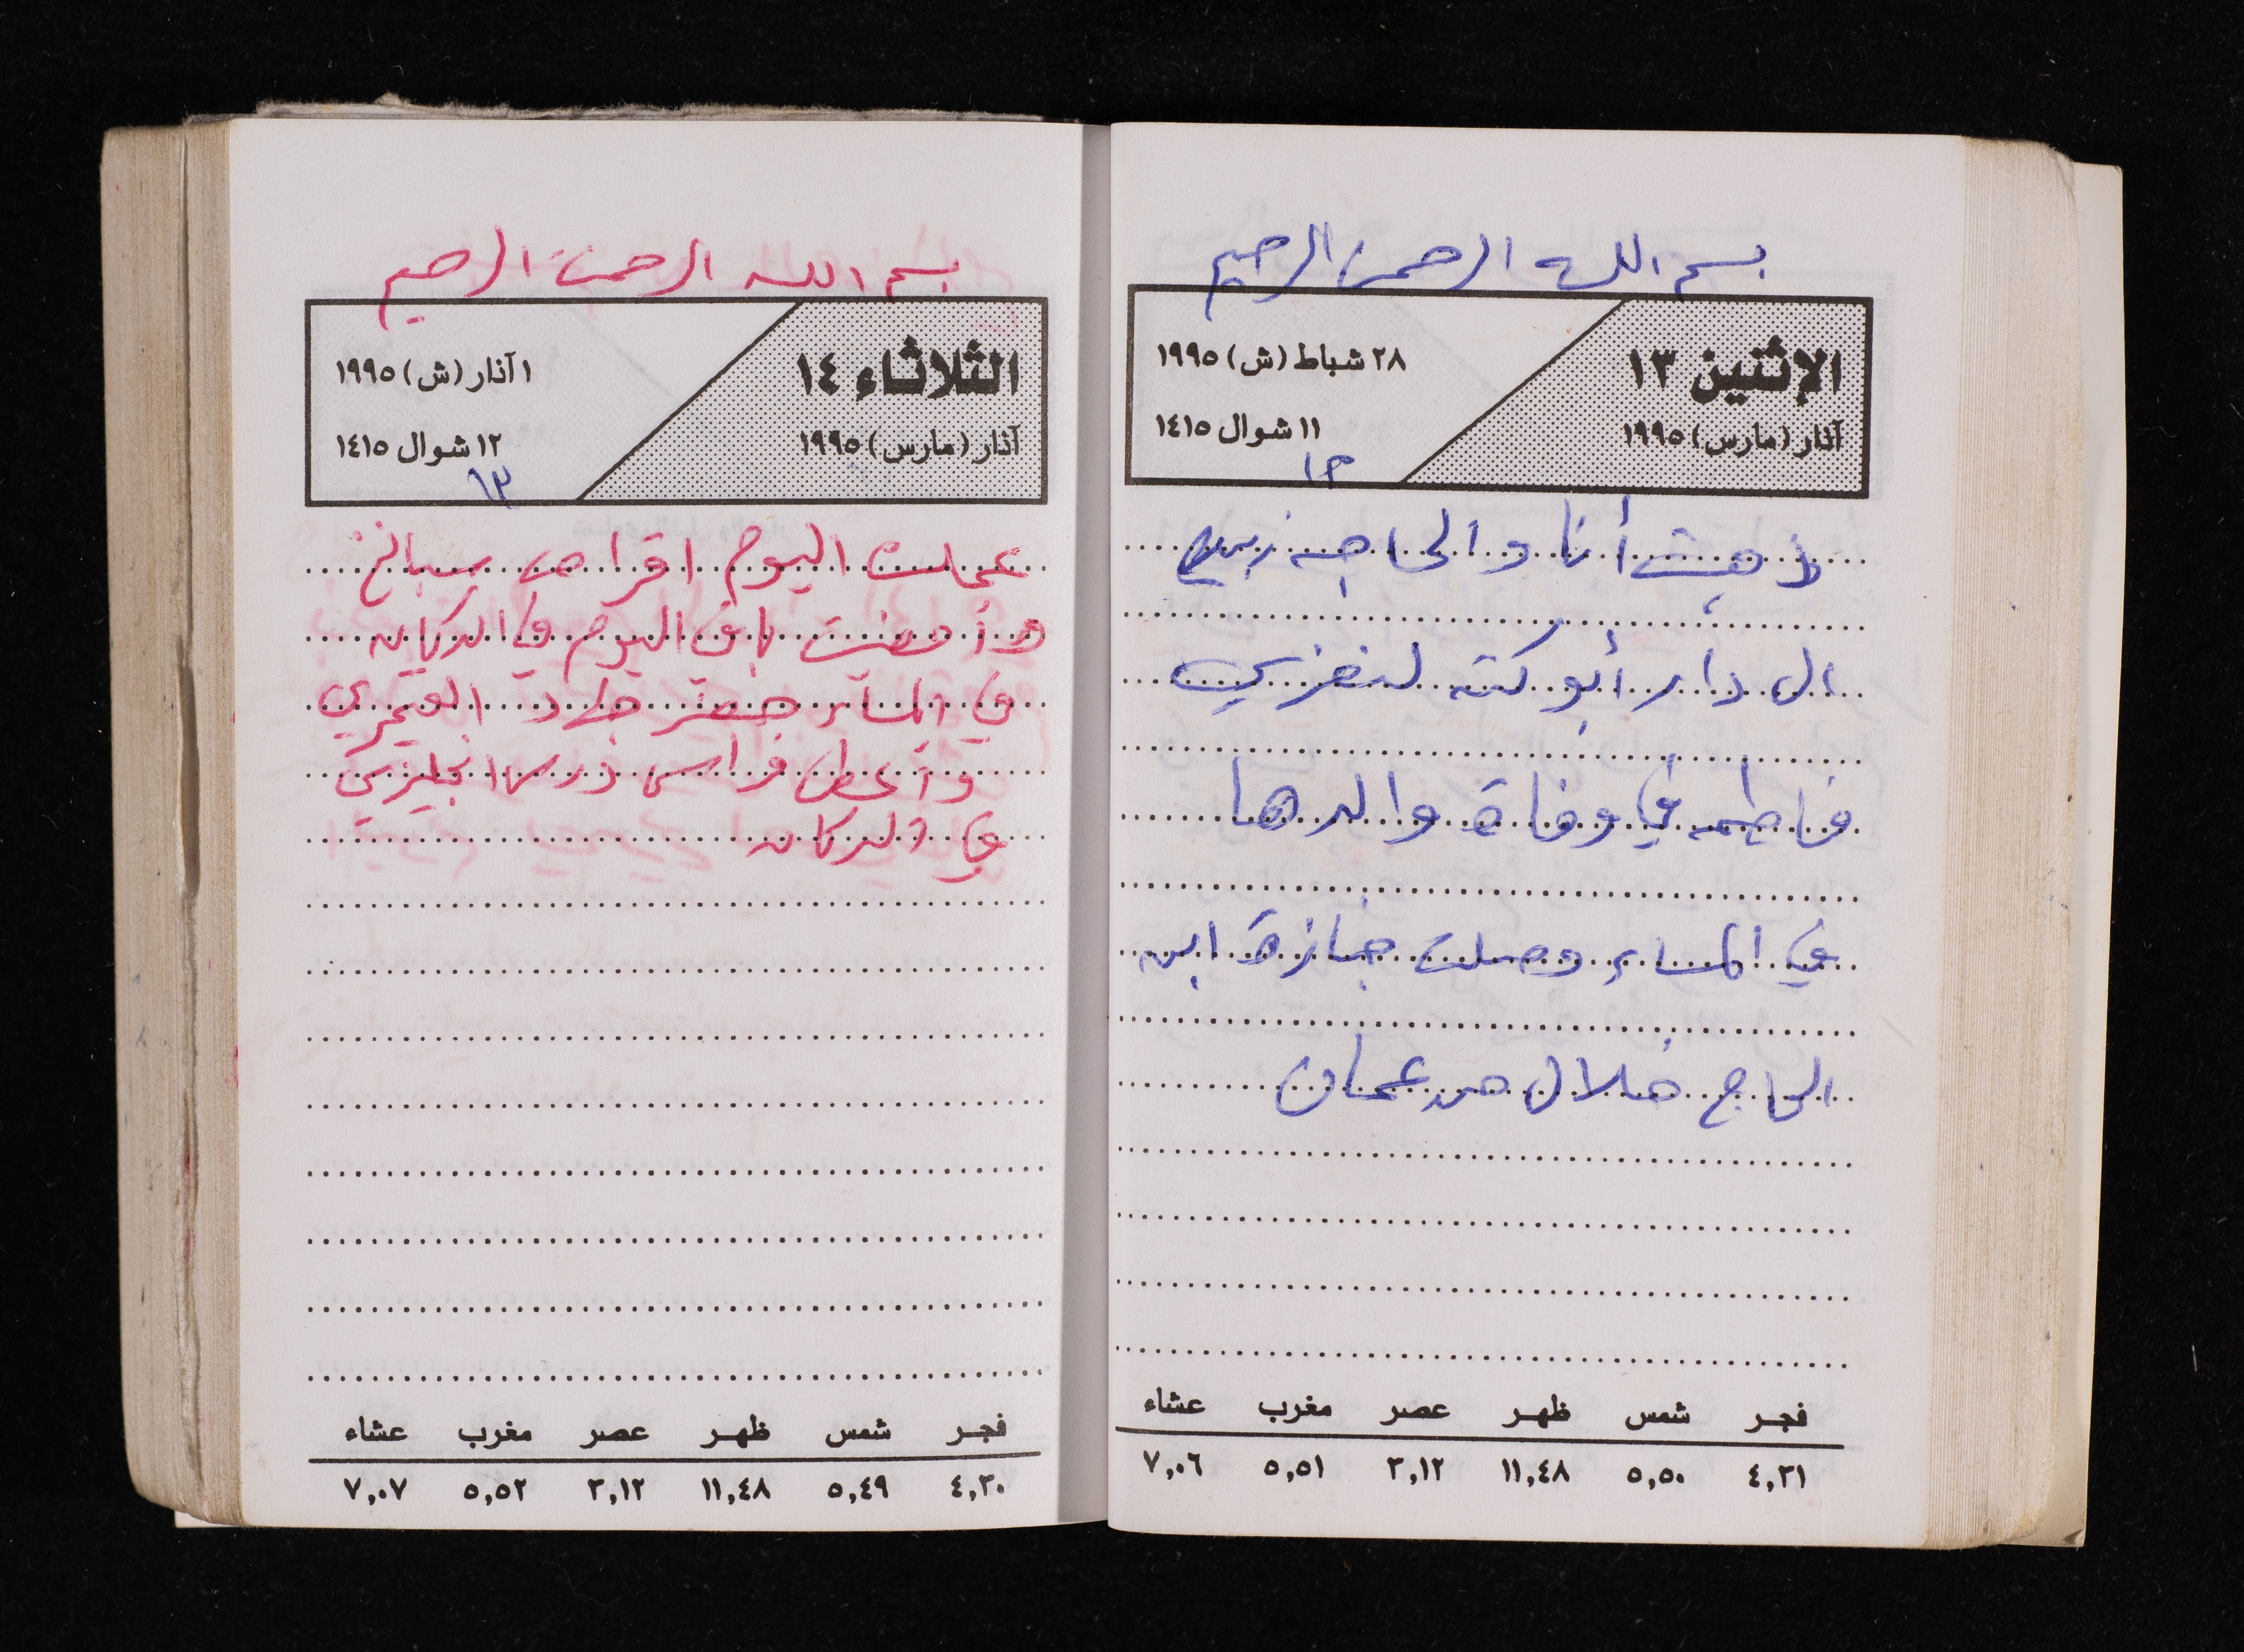 بسم الله الرحمن الرحيم
الإثنين ١٣
آذار (مارس) ١٩٩٥
٢٨ شباط (ش) ١٩٩٥
١١ شوال ١٤١٥
١٢
ذهبت أنا والحاجه زينب
الى دار أبو كته لنعزي
فاطمه في وفاة والدها
في المساء وصلت جنازة ابن
الحاج هلال من عمان
فجر شمس ظهر عصر مغرب عشاء
٤,٣١ ٥,٥٠ ١١,٤٨ ٣,١٢ ٥,٥١ ٧,٠٦
بسم الله الرحمن الرحيم
الثلاثاء ١٤
آذار (مارس) ١٩٩٥
١ آذار (ش) ١٩٩٥
١٢ شوال ١٤١٥
١٣
عملت اليوم اقراص سبانخ
وأمضيت باقي اليوم في الدكان
في المساء حضر جهاد العمري
وأعطى فراس درس انجليزي
في الدكان
فجر شمس ظهر عصر مغرب عشاء
٤,٣٠ ٥,٤٩ ١١,٤٨ ٣,١٢ ٥,٥٢ ٧,٠٧